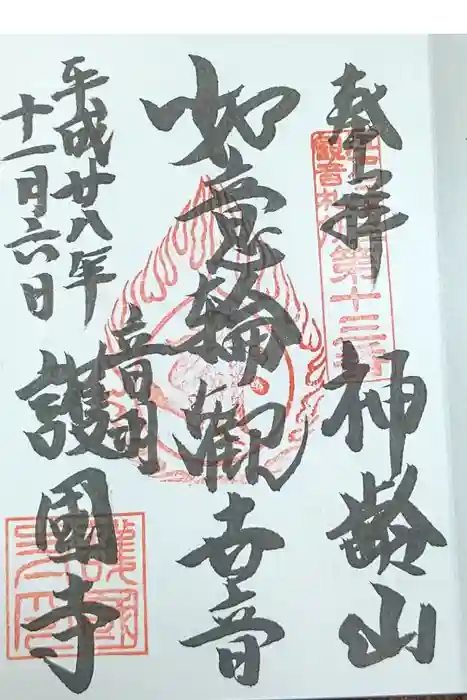 奉拝
神齢山
第十三番
如意輪観世音
音羽
護國寺
平成廿八年
十一月六日